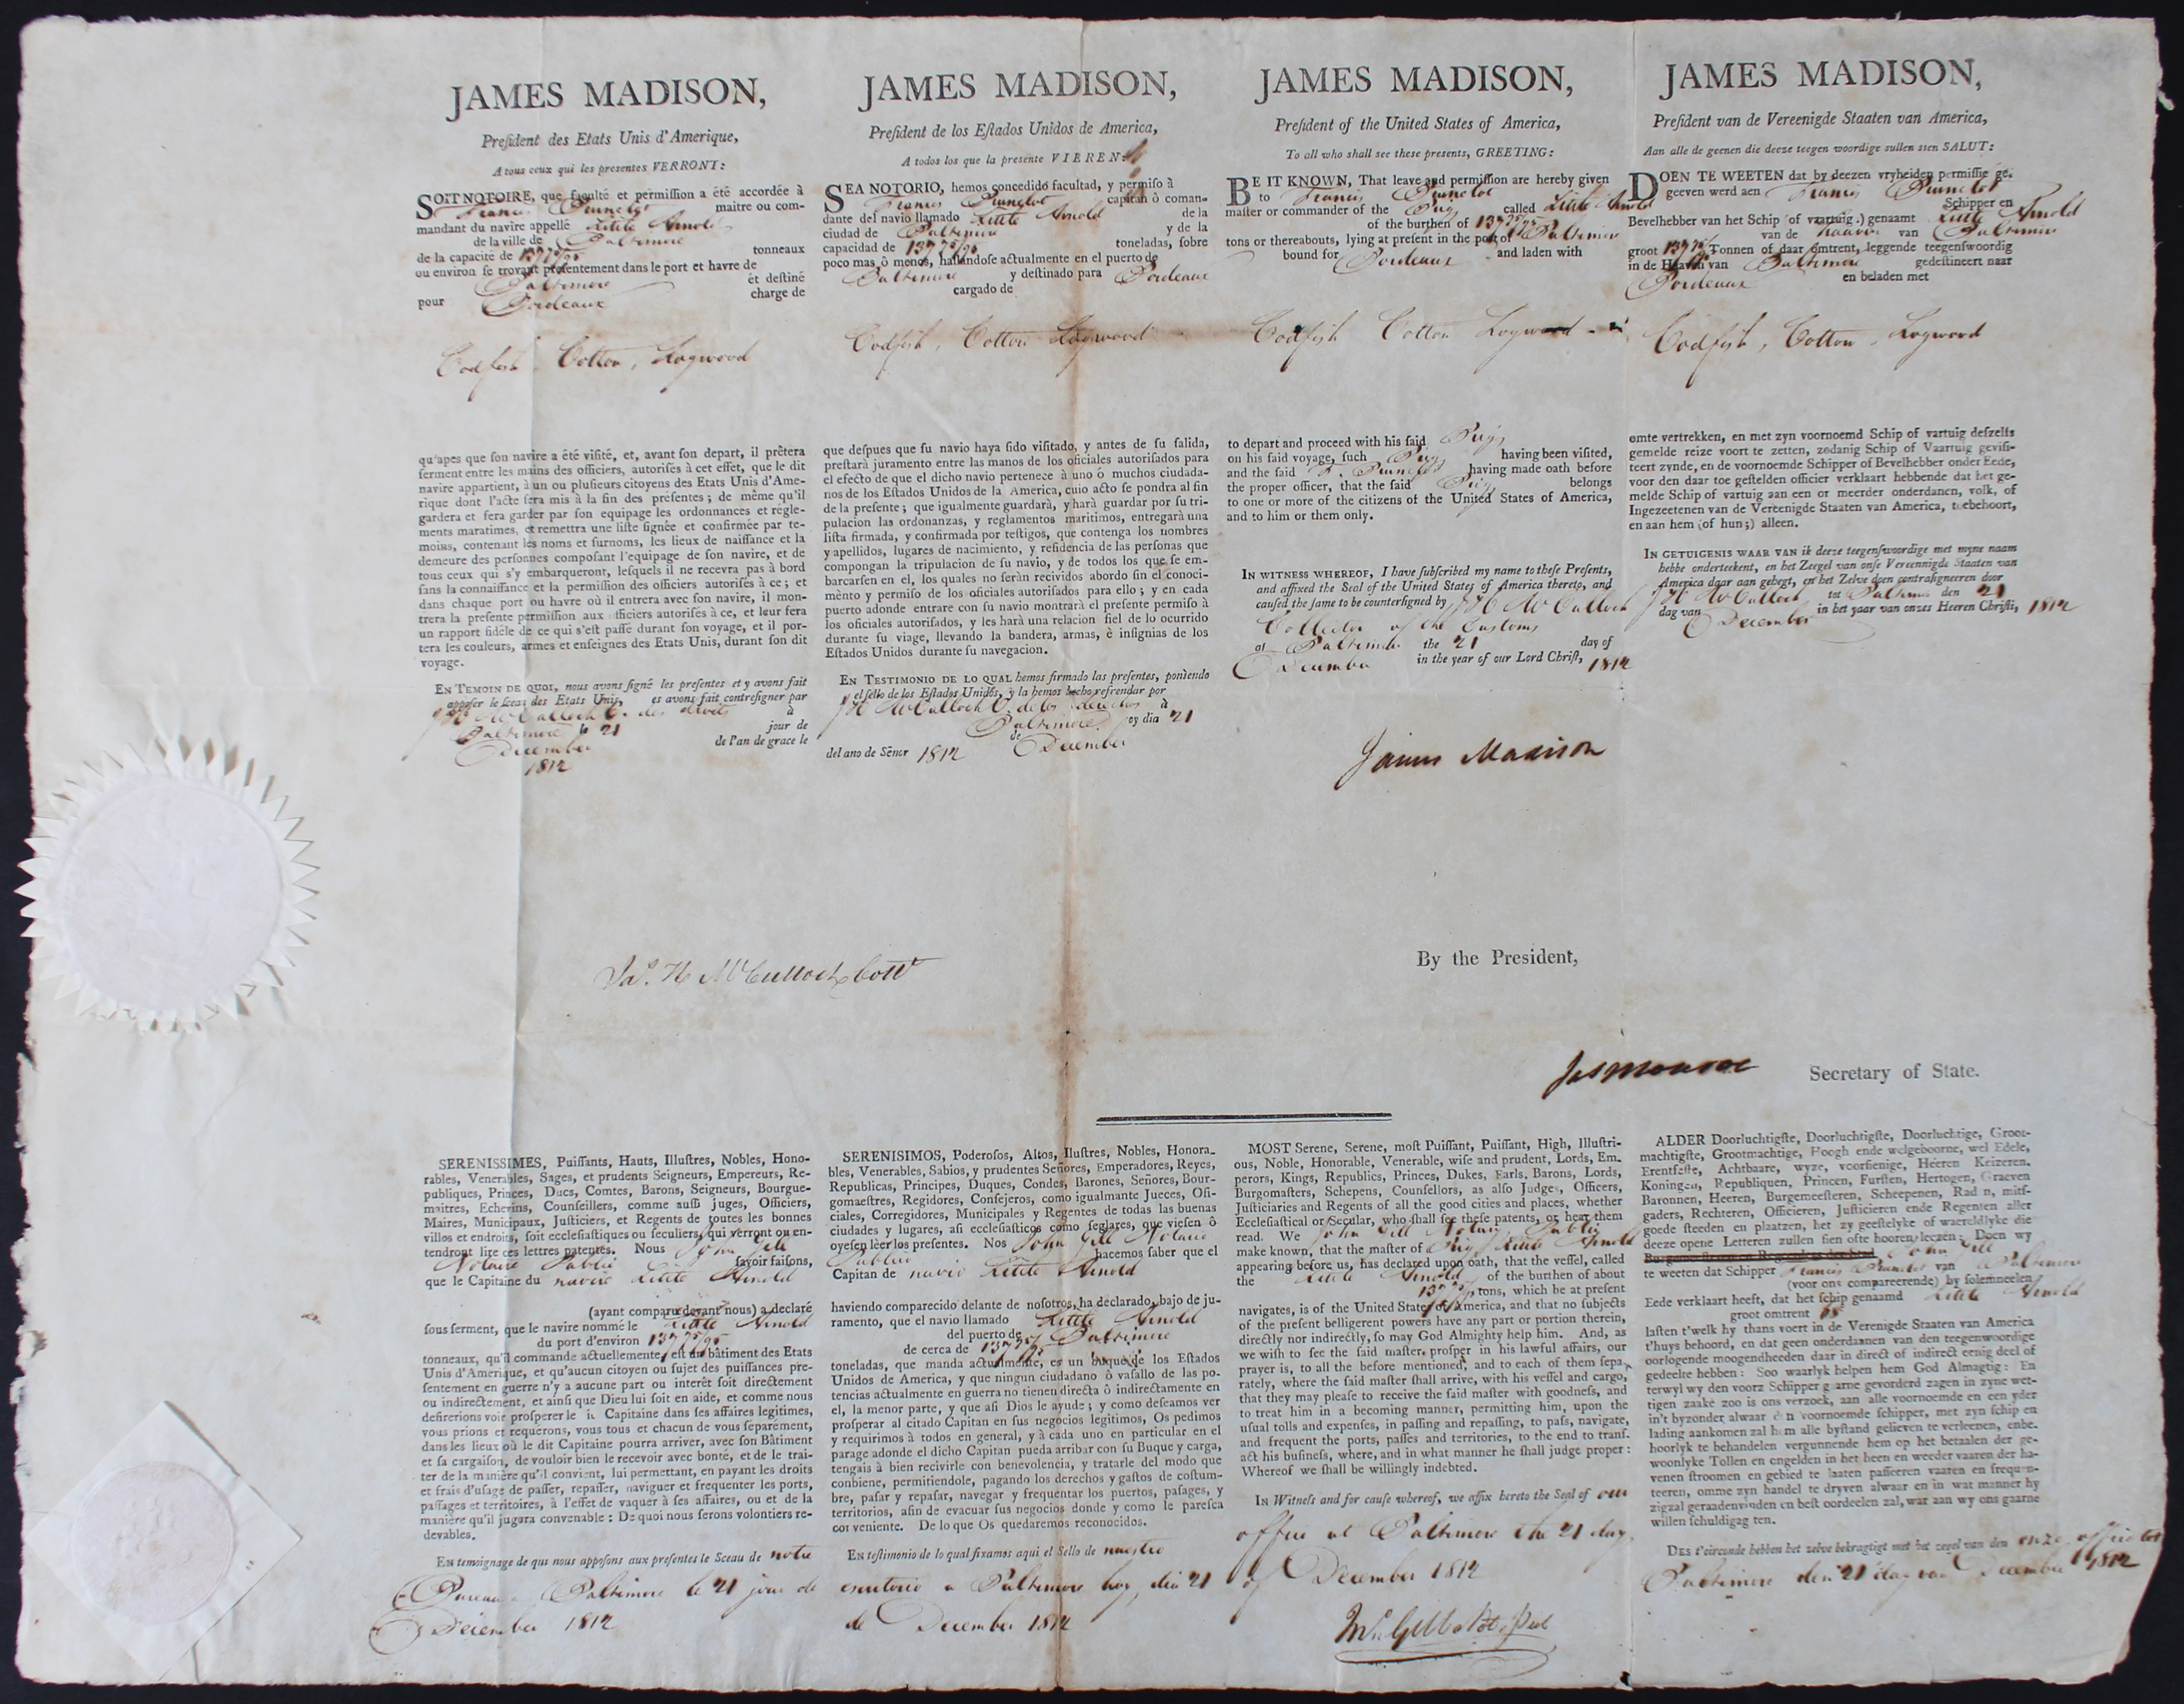 JAMES MADISON,
President des Etats Unis d'Amerique,
A tous ceux qui les presentes VERRONT:
SOIT NOTOIRE, que faculté et permission a été accordée à
Francis Brunelot maitre ou com-
mandant du navire appellé Little Arnold
de la ville de Baltimore
de la capacite de 137 75/95 tonneaux
ou environ se trovant presentement dans le port et havre de
Baltimore et destiné
pour Bordeaux charge de
Codfish, Cotton, Logwood
qu'apes que son navire a été visité, et, avant son depart, il prêtera
serment entre les mains des officiers, autorisés à cet effet, que le dit
navire appartient, à un ou plusieurs citoyens des Etats Unis d'Ame-
rique dont l'acte sera mis à la fin des présentes; de même qu'il
gardera et fera garder par son equipage les ordonnances et régle-
ments maratimes, et remettra une liste signée et confirmée par te-
moins, contenant les noms et surnoms, les lieux de naissance et la
demeure des personnes composant l'equipage de son navire, et de
tous ceux qui s'y embarqueront, lesquels il ne recevra pas à bord
sans la connaissance et la permission des officiers autorisés à ce; et
dans chaque port ou havre où il entrera avec son navire, il mon-
trera la presente permission aux officiers autorisés à ce, et leur fera
un rapport fidèle de ce qui s'est passé durant son voyage, et il por-
tera les couleurs, armes et enseignes des Etats Unis, durant son dit
voyage.
EN TEMOIN DE QUOI, nous avons signé les presentes et y avons fait
apposer le sceau des Etats Unis, es avons fait contresigner par
J H McCulloch C. des droits à
Baltimore le 21 jour de
December de l'an de grace le
1812
JAMES MADISON,
President de los Estados Unidos de America,
A todos los que la presente VIEREN:
SEA NOTORIO, hemos concedido facultad, y permiso à
Francis Brunelot capitan ô coman-
dante del navio llamado Little Arnold de la
ciudad de Baltimore y de la
capacidad de 137 75/95 toneladas, sobre
poco mas ô menos, hallandose actualmente en el puerto de
Baltimore y destinado para Bordeaux
cargado de
Codfish, Cotton Logwood
que despues que su navio haya sido visitado, y antes de su salida,
prestarà juramento entre las manos de los oficiales autorisados para
el efecto de que el dicho navio pertenece à uno ó muchos ciudada-
nos de los Estados Unidos de la America, cuio acto se pondra al fin
de la presente; que igualmente guardarà, y harà guardar por su tri-
pulacion las ordonanzas, y reglamentos maritimos, entregarà una
lista firmada, y confirmada por testigos, que contenga los nombres
y apellidos, lugares de nacimiento, y residencia de las personas que
compongan la tripulacion de su navio, y de todos los que se em-
barcarsen en el, los quales no seràn recividos abordo sin el conoci-
mènto y permiso de los oficiales autorisados para ello; y en cada
puerto adonde entrare con su navio montrarà el presente permiso à
los oficiales autorisados, y les harà una relacion fiel de lo ocurrido
durante su viage, llevando la bandera, armas, è insignias de los
Estados Unidos durante su navegacion.
EN TESTIMONIO DE LO QUAL hemos firmado las presentes, poniendo
el sello de los Estados Unidos, y la hemos hecho refrendar por
J H McCulloch C. de los derechos à
Baltimore oy dia 21
de December
del ano de Sênor 1812
JAMES MADISON,
President of the United States of America,
To all who shall see these presents, GREETING:
BE IT KNOWN, That leave and permission are hereby given
to Francis Brunelot
master or commander of the Brig called Little Arnold
of the burthen of 137 75/95
tons or thereabouts, lying at present in the port of Baltimore
bound for Bordeaux and laden with
Codfish Cotton Logwood
to depart and proceed with his said Brig
on his said voyage, such Brig having been visited,
and the said F. Brunelot having made oath before
the proper officer, that the said Brig belongs
to one or more of the citizens of the United States of America,
and to him or them only.
IN WITNESS WHEREOF, I have subscribed my name to these Presents,
and affixed the Seal of the United States of America thereto, and
caused the same to be countersigned by J H McCulloch
Collector of the Customs
at Baltimore the 21 day of
December in the year of our Lord Christ, 1812
James Madison
JAMES MADISON,
President van de Vereenigde Staaten van America,
Aan alle de geenen die deeze teegen woordige sullen sien SALUT:
DOEN TE WEETEN dat by deezen vryheiden permissie ge-
geeven werd aen Francis Brunelot
Schipper en
Bevelhebber van het Schip (of vaartuig.) genaamt Little Arnold
van de haaven van Baltimore
groot 137 75/95 Tonnen of daar omtrent, leggende teegenswoordig
in de Haaven van Baltimore gedestineert naar
Bordeaux en beladen met
Codfish, Cotton, Logwood
omte vertrekken, en met zyn voornoemd Schip of vartuig deszelfs
gemelde reize voort te zetten, zodanig Schip of Vaartuig gevisi-
teert zynde, en de voornoemde Schipper of Bevelhebber onder Eede,
voor den daar toe gestelden officier verklaart hebbende dat het ge-
melde Schip of vartuig aan een or meerder onderdanen, volk, of
Ingezeetenen van de Vereenigde Staaten van America, toebehoort,
en aan hem (of hun;) alleen.
IN GETUIGENIS WAAR VAN ik deeze teegenswoordige met myne naam
hebbe onderteekent, en het Zeegel van onse Vereennigde Staaten van
America daar aan gehegt, en het Zelve doen contrasigneeren door
J H McCulloch tot Baltimore den 21
dag van December in het jaar van onzes Heeren Christi, 1812
Jas. H McCulloch Collr
By the President,
Jas Monroe Secretary of State.
SERENISSIMES, Puissants, Hauts, Illustres, Nobles, Hono-
rables, Venerables, Sages, et prudents Seigneurs, Empereurs, Re-
publiques, Princes, Ducs, Comtes, Barons, Seigneurs, Bourgue-
maitres, Echevins, Counseillers, comme aussi juges, Officiers,
Maires, Municipaux, Justiciers, et Regents de toutes les bonnes
villos et endroits, soit ecclesiastiques ou seculiers, qui verront ou en-
tendront lire ces lettres patentes. Nous John Gill
Notaire Public savoir faisons,
que le Capitaine du navire Little Arnold
(ayant comparu devant nous) a declaré
sous serment, que le navire nommé le Little Arnold
du port d'environ 137 75/95
tonneaux, qu'il commande actuellement, est un bâtiment des Etats
Unis d'Amerique, et qu'aucun citoyen ou sujet des puissances pre-
sentement en guerre n'y a aucune part ou interêt soit directement
ou indirectement, et ainsi que Dieu lui soit en aide, et comme nous
desirerions voir prosperer le Capitaine dans ses affaires legitimes,
vous prions et requerons, vous tous et chacun de vous séparement,
dans les lieux où le dit Capitaine pourra arriver, avec son Bâtiment
et sa cargaison, de vouloir bien le recevoir avec bonté, et de le trai-
ter de la manière qu'il convient, lui permettant, en payant les droits
et frais d'usage de passer, repasser, naviguer et frequenter les ports,
passages et territoires, à l'effet de vaquer à ses affaires, ou et de la
manière qu'il jugura convenable: De quoi nous serons volontiers re-
devables.
EN temoignage de qus nous apposons aux presentes le Sceau de notre
Bureau a Baltimore le 21 jour de
December 1812
SERENISIMOS, Poderosos, Altos, Ilustres, Nobles, Honora-
bles, Venerables, Sabios, y prudentes Señores, Emperadores, Reyes,
Republicas, Principes, Duques, Condes, Barones, Señores, Bour-
gomaestres, Regidores, Consejeros, como igualmante Jueces, Ofi-
ciales, Corregidores, Municipales y Regentes de todas las buenas
ciudades y lugares, asi ecclesiasticos como seglares, que viesen ô
oyesen lèer los presentes. Nos John Gill Notario
Publico hacemos saber que el
Capitan de navio Little Arnold
haviendo comparecido delante de nosotros, ha declarado, bajo de ju-
ramento, que el navio llamado Little Arnold
del puerto de Baltimore
de cerca de 137 75/95
toneladas, que manda actualmente, es un buque de los Estados
Unidos de America, y que ningun ciudadano ô vasallo de las po-
tencias actualmente en guerra no tienen directa ô indirectamente en
el, la menor parte, y que asi Dios le ayude; y como deseamos ver
prosperar al citado Capitan en sus negocios legitimos, Os pedimos
y requirimos à todos en general, y à cada uno en particular en el
parage adonde el dicho Capitan pueda arribar con su Buque y carga,
tengais à bien recivirle con benevolencia, y tratarle del modo que
conbiene, permitiendole, pagando los derechos y gastos de costum-
bre, pasar y repasar, navegar y frequentar los puertos, pasages, y
territorios, afin de evacuar sus negocios donde y como le paresca
conveniente. De lo que Os quedaremos reconocidos.
EN testimonio de lo qual fixamos aqui el Sello de nuestro
escritorio a Baltimore hoy dia 21
de December 1812
MOST Serene, Serene, most Puissant, Puissant, High, Illustri-
ous, Noble, Honorable, Venerable, wise and prudent, Lords, Em-
perors, Kings, Republics, Princes, Dukes, Earls, Barons, Lords,
Burgomasters, Schepens, Counsellors, as also Judges, Officers,
Justiciaries and Regents of all the good cities and places, whether
Ecclesiastical or Secular, who shall see these patents, or hear them
read. We John Gill Notary Public
make known, that the master of Brig Little Arnold
appearing before us, has declared upon oath, that the vessel, called
the Little Arnold of the burthen of about
137 75/95 tons, which be at present
navigates, is of the United States of America, and that no subjects
of the present belligerent powers have any part or portion therein,
directly nor indirectly, so may God Almighty help him. And, as
we wish to see the said master prosper in his lawful affairs, our
prayer is, to all the before mentioned, and to each of them sepa-
rately, where the said master shall arrive, with his vessel and cargo,
that they may please to receive the said master with goodness, and
to treat him in a becoming manner, permitting him, upon the
usual tolls and expenses, in passing and repassing, to pass, navigate,
and frequent the ports, passes and territories, to the end to trans-
act his business, where, and in what manner he shall judge proper:
Whereof we shall be willingly indebted.
IN Witness and for cause whereof, we affix hereto the Seal of our
office at Baltimore the 21 day
of December 1812
Jn. Gill Not. Pub
ALDER Doorluchtigste, Doorluchtigste, Doorluchtige, Groot-
machtigste, Grootmachtige, Hoogh ende welgeboorne, wel Edele,
Erentfeste, Achtbaare, wyze, voorsienige, Heeren Keizeren,
Koningen, Republiquen, Princen, Fursten, Hertogen, Graeven
Baronnen, Heeren, Burgemeesteren, Scheepenen, Raden, mits-
gaders, Rechteren, Officieren, Justicieren ende Regenten aller
goede steeden en plaatzen, het zy geestelyke of waereldlyke die
deeze opene Letteren zullen sien ofte hooren leezen: Doen wy
John Gill
te weeten dat Schipper Francis Brunelot van Baltimore
(voor ons compareerende) by solemneelen
Eede verklaart heeft, dat het schip genaamd Little Arnold
groot omtrent
lasten t'welk hy thans voert in de Verenigde Staaten van America
t'huys behoord, en dat geen onderdaanen van den teegenwoordige
oorlogende moogendheeden daar in direct of indirect eenig deel of
gedeelte hebben: Soo waarlyk helpen hem God Almagtig: En
terwyl wy den voorz Schipper gaarne gevorderd zagen in zyne wet-
tigen zaake zoo is ons verzoek, aan alle voornoemde en een yder
in't byzonder, alwaar den voornoemde schipper, met zyn schip en
lading aankomen zal hem alle bystand gelieven te verleenen, enbe-
hoorlyk te behandelen vergunnende hem op het betaalen der ge-
woonlyke Tollen en ongelden in het heen en weeder vaaren der ha-
venen stroomen en gebied te laaten passeeren vaaren en frequen-
teeren, omme zyn handel te dryven alwaar en in wat manner hy
zigzal geraadenvinden en best oordeelen zal, war aan wy ons gaarne
willen schuldigag ten.
DES t'eirconde hebben het zelve bekragtigt met het zegel van den onze officie tot
Baltimore den 21 dag van December 1812